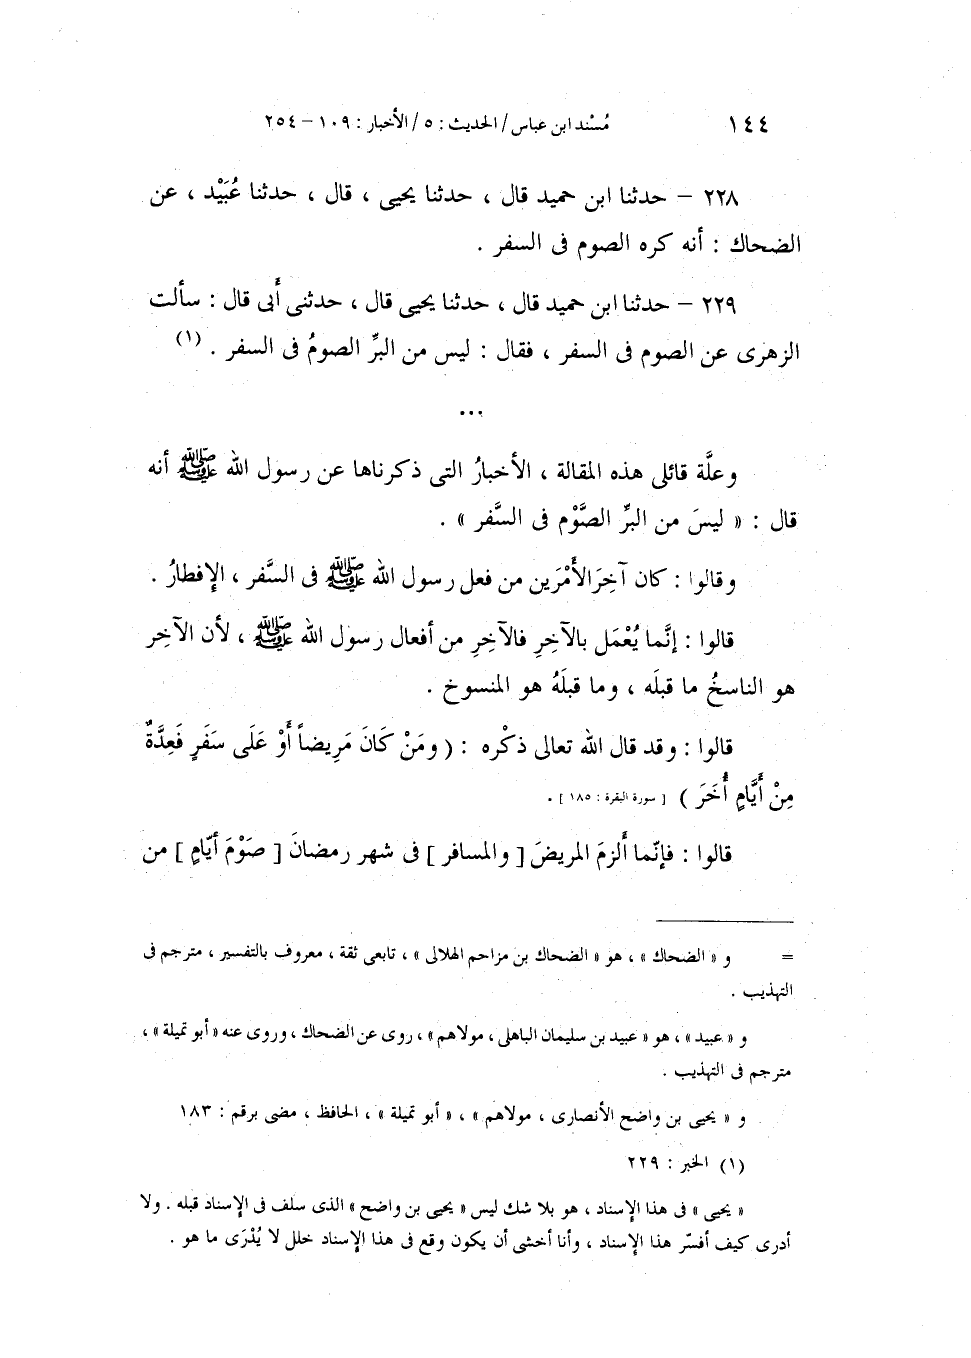 ١٤٤ مُسْند ابن عباس / الحديث : ٥ / الأخبار : ١٠٩ – ٢٥٤
٢٢٨ – حدثنا ابن حميد قال ، حدثنا يحيى ، قال ، حدثنا عُبَيْد ، عن
الضحاك : أنه كره الصوم فى السفر .
٢٢٩ – حدثنا ابن حميد قال ، حدثنا يحيى قال ، حدثنى أَبى قال : سألت
الزهرى عن الصوم فى السفر ، فقال : ليس من البرِّ الصومُ فى السفر . (١)
...
وعلَّة قائلى هذه المقالة ، الأخبارُ التى ذكرناها عن رسول الله ﷺ أنه
قال : « ليسَ من البرِّ الصَّوْم فى السَّفر » .
وقالوا : كان آخِرَ الأمْرَين من فعل رسول الله ﷺ فى السَّفر ، الإفطارُ .
قالوا : إنَّما يُعْمَل بالآخِرِ فالآخِرِ من أفعال رسول الله ﷺ ، لأن الآخِر
هو الناسخُ ما قبلَه ، وما قبلَهُ هو المنسوخ .
قالوا : وقد قال الله تعالى ذكْره : ( ومَنْ كَانَ مَرِيضاً أَوْ عَلَى سَفَرٍ فَعِدَّةٌ
مِنْ أَيَّامٍ أُخَرَ ) [ سورة البقرة : ١٨٥ ] .
قالوا : فإنّما أَلزمَ المريضَ [ والمسافر ] فى شهر رمضانَ [ صَوْمَ أيّامٍ ] من
= و « الضحاك » ، هو « الضحاك بن مزاحم الهلالى » ، تابعى ثقة ، معروف بالتفسير ، مترجم فى
التهذيب .
و « عبيد » ، هو « عبيد بن سليمان الباهلى ، مولاهم » ، روى عن الضحاك ، وروى عنه « أبو تميلة » ،
مترجم فى التهذيب .
و « يحيى بن واضح الأنصارى ، مولاهم » ، « أبو تميلة » ، الحافظ ، مضى برقم : ١٨٣
(١) الخبر : ٢٢٩
« يحيى » فى هذا الإسناد ، هو بلا شك ليس « يحيى بن واضح » الذى سلف فى الإسناد قبله . ولا
أدرى كيف أفسّر هذا الإسناد ، وأنا أخشى أن يكون وقع فى هذا الإسناد خلل لا يُدْرَى ما هو .